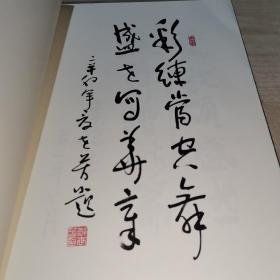 彩練當空舞
盛世寫華章
辛卯年夏